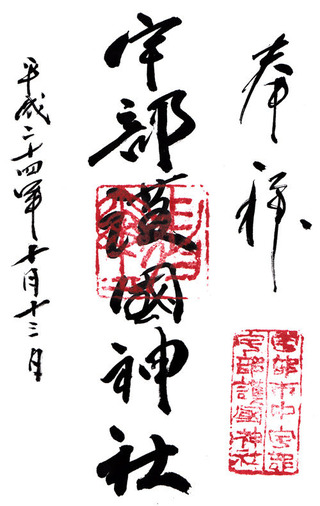 奉拝
宇部市中宇部
宇部護國神社
宇部護國神社
平成二十四年十月十三日